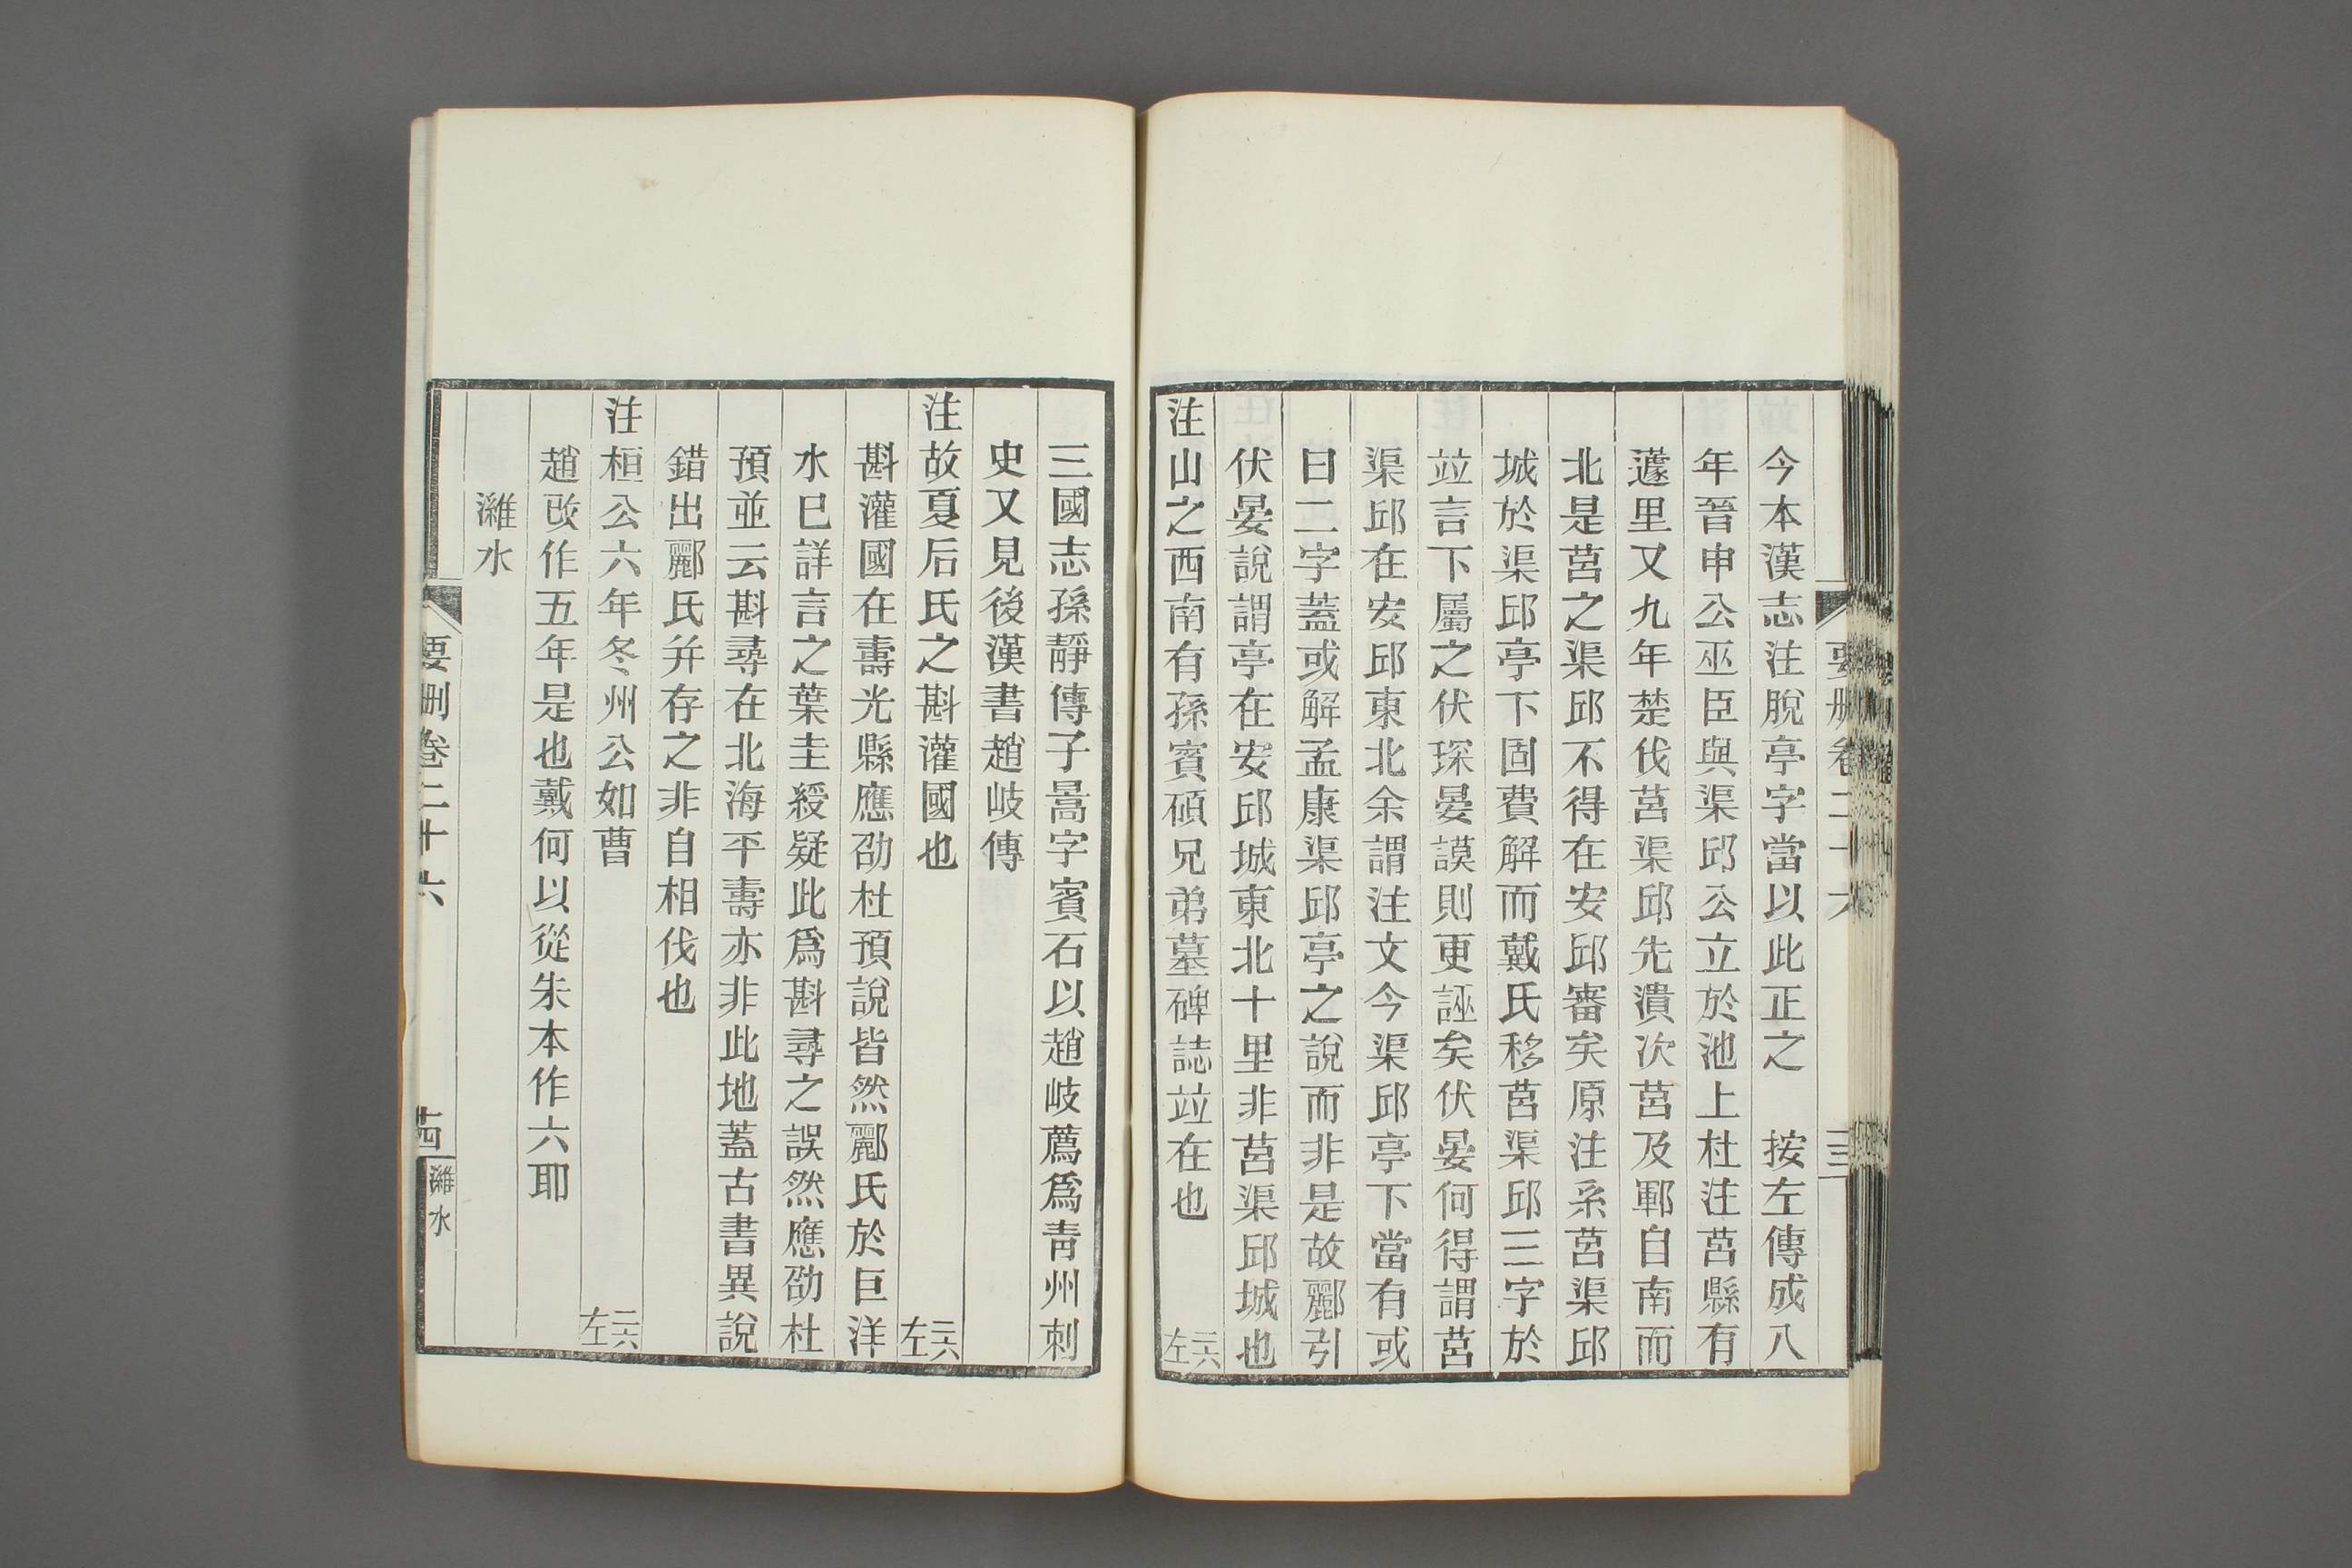 今本漢志注脫亭字當以此正之　按左傳成八
年晉申公巫臣與渠邱公立於池上杜注莒縣有
蘧里又九年楚伐莒渠邱先潰次莒及鄆自南而
北是莒之渠邱不得在安邱審矣原注系莒渠邱
城於渠邱亭下固費解而戴氏移莒渠邱三字於
竝言下屬之伏琛晏謨則更誣矣伏晏何得謂莒
渠邱在安邱東北余謂注文今渠邱亭下當有或
曰二字蓋或解孟康渠邱亭之說而非是故酈引
伏晏說謂亭在安邱城東北十里非莒渠邱城也
注山之西南有孫賓碩兄弟墓碑誌竝在也
二六左
三國志孫靜傳子暠字賓石以趙岐薦爲靑州刺
史又見後漢書趙岐傳
注故夏后氏之斟灌國也
二六左
斟灌國在壽光縣應劭杜預說皆然酈氏於巨洋
水巳詳言之葉圭綬疑此爲斟尋之誤然應劭杜
預並云斟尋在北海平壽亦非此地蓋古書異說
錯出酈氏并存之非自相伐也
注桓公六年冬州公如曹
二六左
趙改作五年是也戴何以從朱本作六耶
濰水
要删卷二十六
十四
濰水